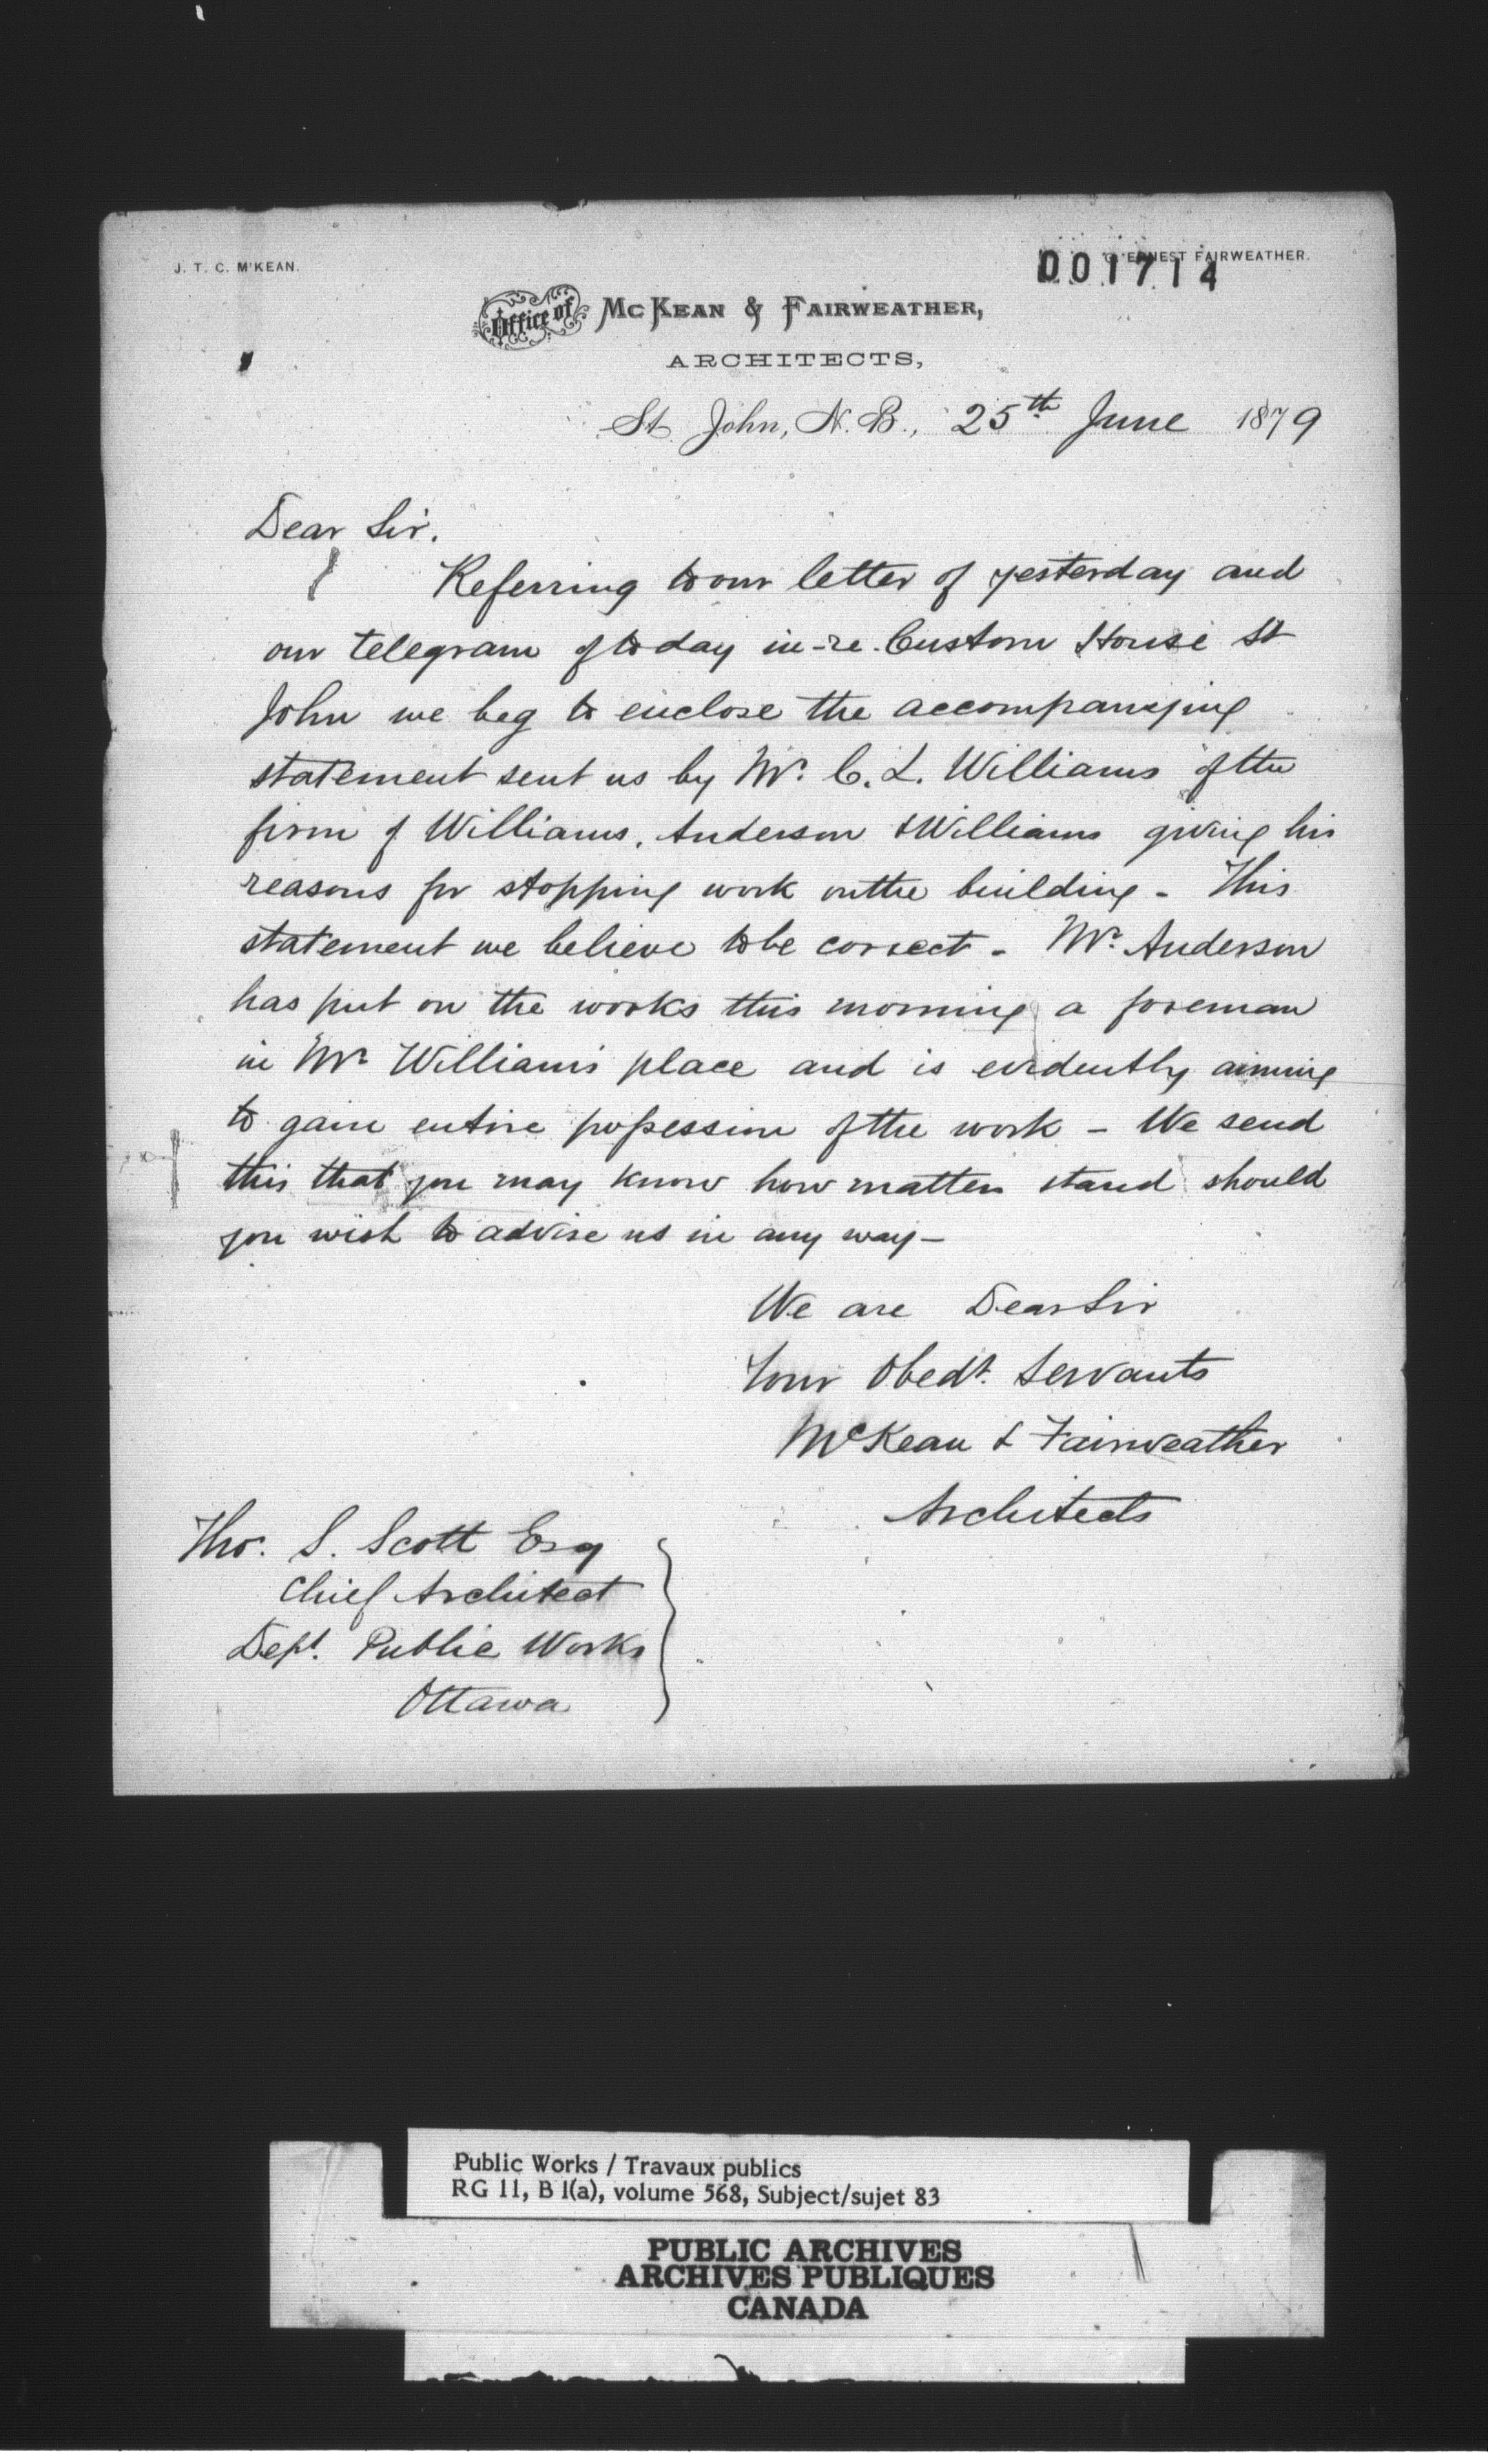 J. T. C. M'KEAN.
G. ERNEST FAIRWEATHER.
001714
Office of McKean & Fairweather,
ARCHITECTS,
St. John, N. B., 25th June 1879
Dear Sir.
Referring to our letter of yesterday and
our telegram of today in-re. Custom House St
John we beg to enclose the accompanying
statement sent us by Mr. C. L. Williams of the
firm of Williams, Anderson & Williams giving his
reasons for stopping work on the building - This
statement we believe to be correct - Mr. Anderson
has put on the works this morning a foreman
in Mr Williams place and is evidently aiming
to gain entire possession of the work - We send
this that you may know how matters stand should
you wish to advise us in any way -
We are Dear Sir
Your Obedt. Servants
McKean & Fairweather
Architects
Tho. S. Scott Esq
Chief Architect
Dept. Public Works
Ottawa
Public Works / Travaux publics
RG 11, B 1(a), volume 568, Subject/sujet 83
PUBLIC ARCHIVES
ARCHIVES PUBLIQUES
CANADA